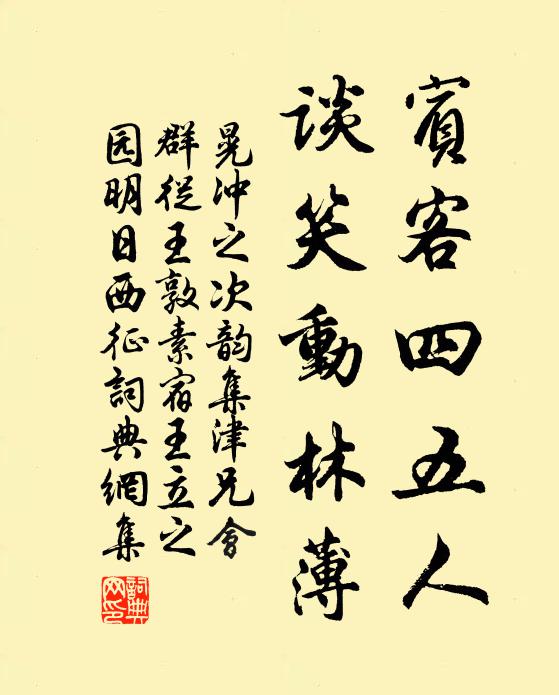 賓客四五人
談笑動林薄
晁冲之次韵集津兄會
群從王敦素宿王立之
园明日西征詞典網集
詞典网印